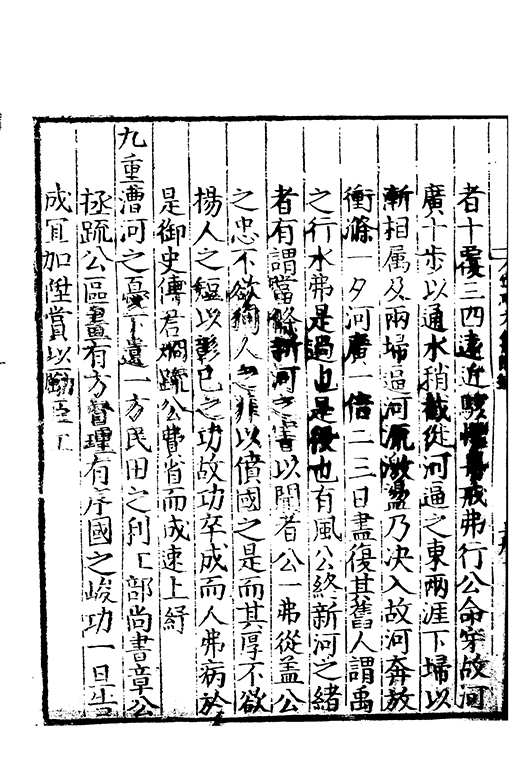 者十覆三四遠近駭懼夀戒弗行公命穿故河
廣十步以通水稍截從河逼之東兩涯下埽以
漸相属及兩埽逼河流激盪乃决入故河奔放
衝滌一夕河廣一倍二三日盡復其舊人謂禹
之行水弗是過也是役也有風公終新河之緒
者有謂當條新河之害以聞者公一弗從盖公
之忠不欲狥人之非以僨國之是而其厚不欲
揚人之短以彰己之功故功卒成而人弗病於
是御史傅君烱䟽公費省而成速上紓
九重漕河之憂下遺一方民田之利工部尚書章公
拯䟽公區畫有方督理有序國之峻功一旦告
成冝加陞賞以勵臣工